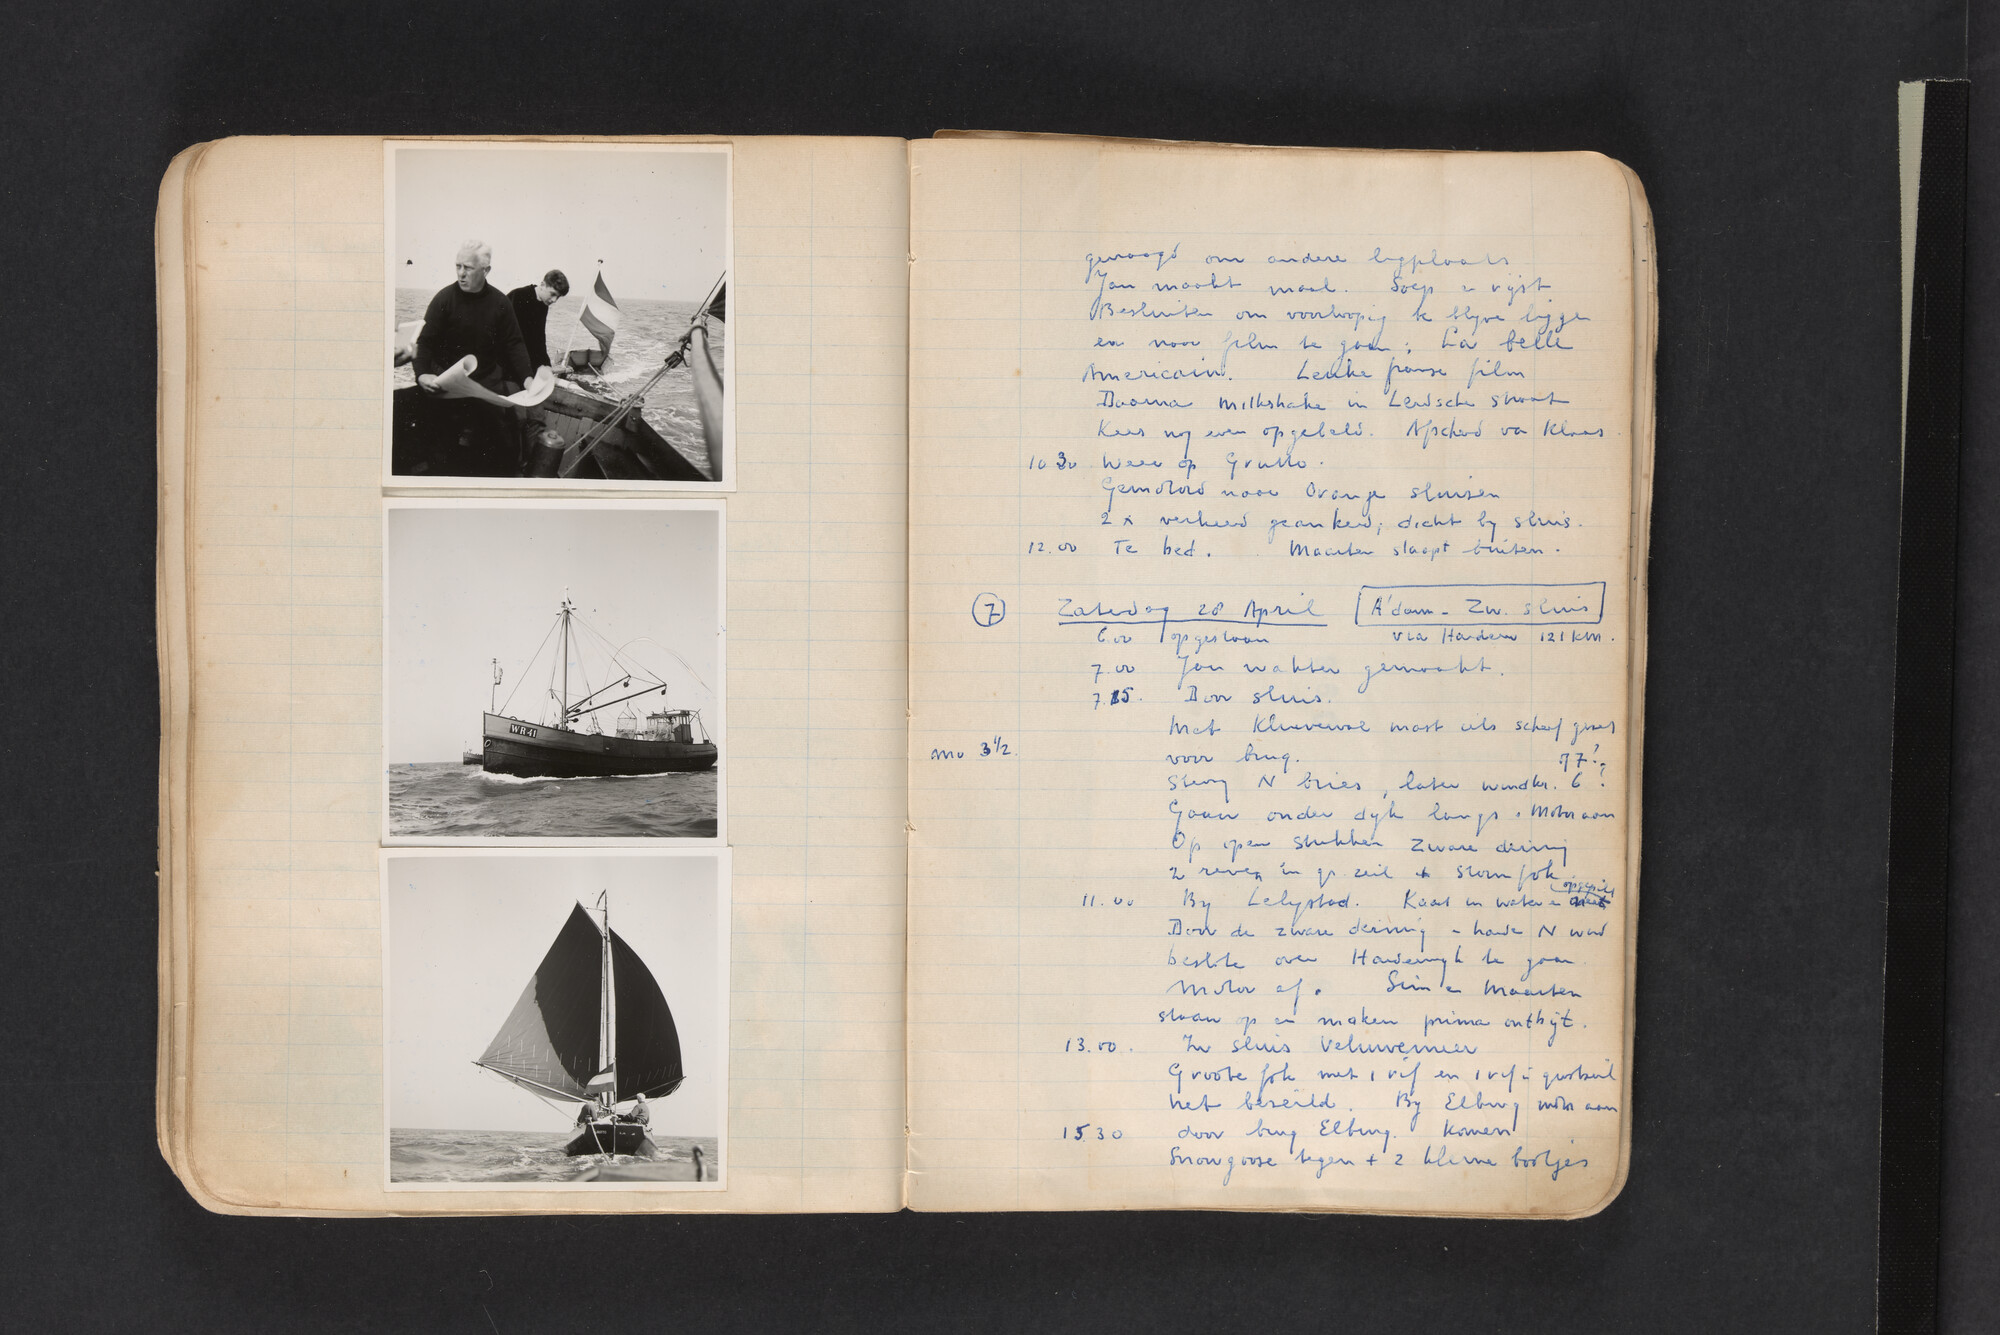 WR 41
gevraagd om andere ligplaats
Jan maakt maal. Soep en rijst
Besluiten om voorlopig te blijve liggen
en naar film te gaan: La belle
Americain. Leuke franse film
Daarna milkshake in Leidsche straat
Kees nog even opgebeld. Afscheid van Klaas
10 30 Weer op Grutto.
Gemotord naar Oranje sluisen
2 x verkeerd geankerd; dicht by sluis.
12.00 Te bed. Maarten slaapt buiten.
7 Zaterdag 28 April A'dam - Zw. sluis
6.00 opgestaan via Harderw 121 km.
7.00 Jan wakker gemaakt.
7.15. Door sluis.
Met mast iets scheef
Mo 3 1/2. voor brug. of 7?
Stevig N bries, later windkr. 6?
Gaan onder dijk langs. Motor aan
Op open stukken zware deining
2 reven in gr. zeil + stormfok
11.00 By Lelystad. Kaart in water en opgevist
Door de zware deining - harde N wind
beslote over Harderwyk te gaan
Motor af. Siem en Maarten
staan op en maken prima ontbyt.
13.00. In sluis Veluwemeer
Groote fok met 1 rif en 1 rif in grootzeil
het bezeild. By Elburg motor aan
15 30 door brug Elburg. Komen
Snowgoose tegen + 2 kleine bootjes